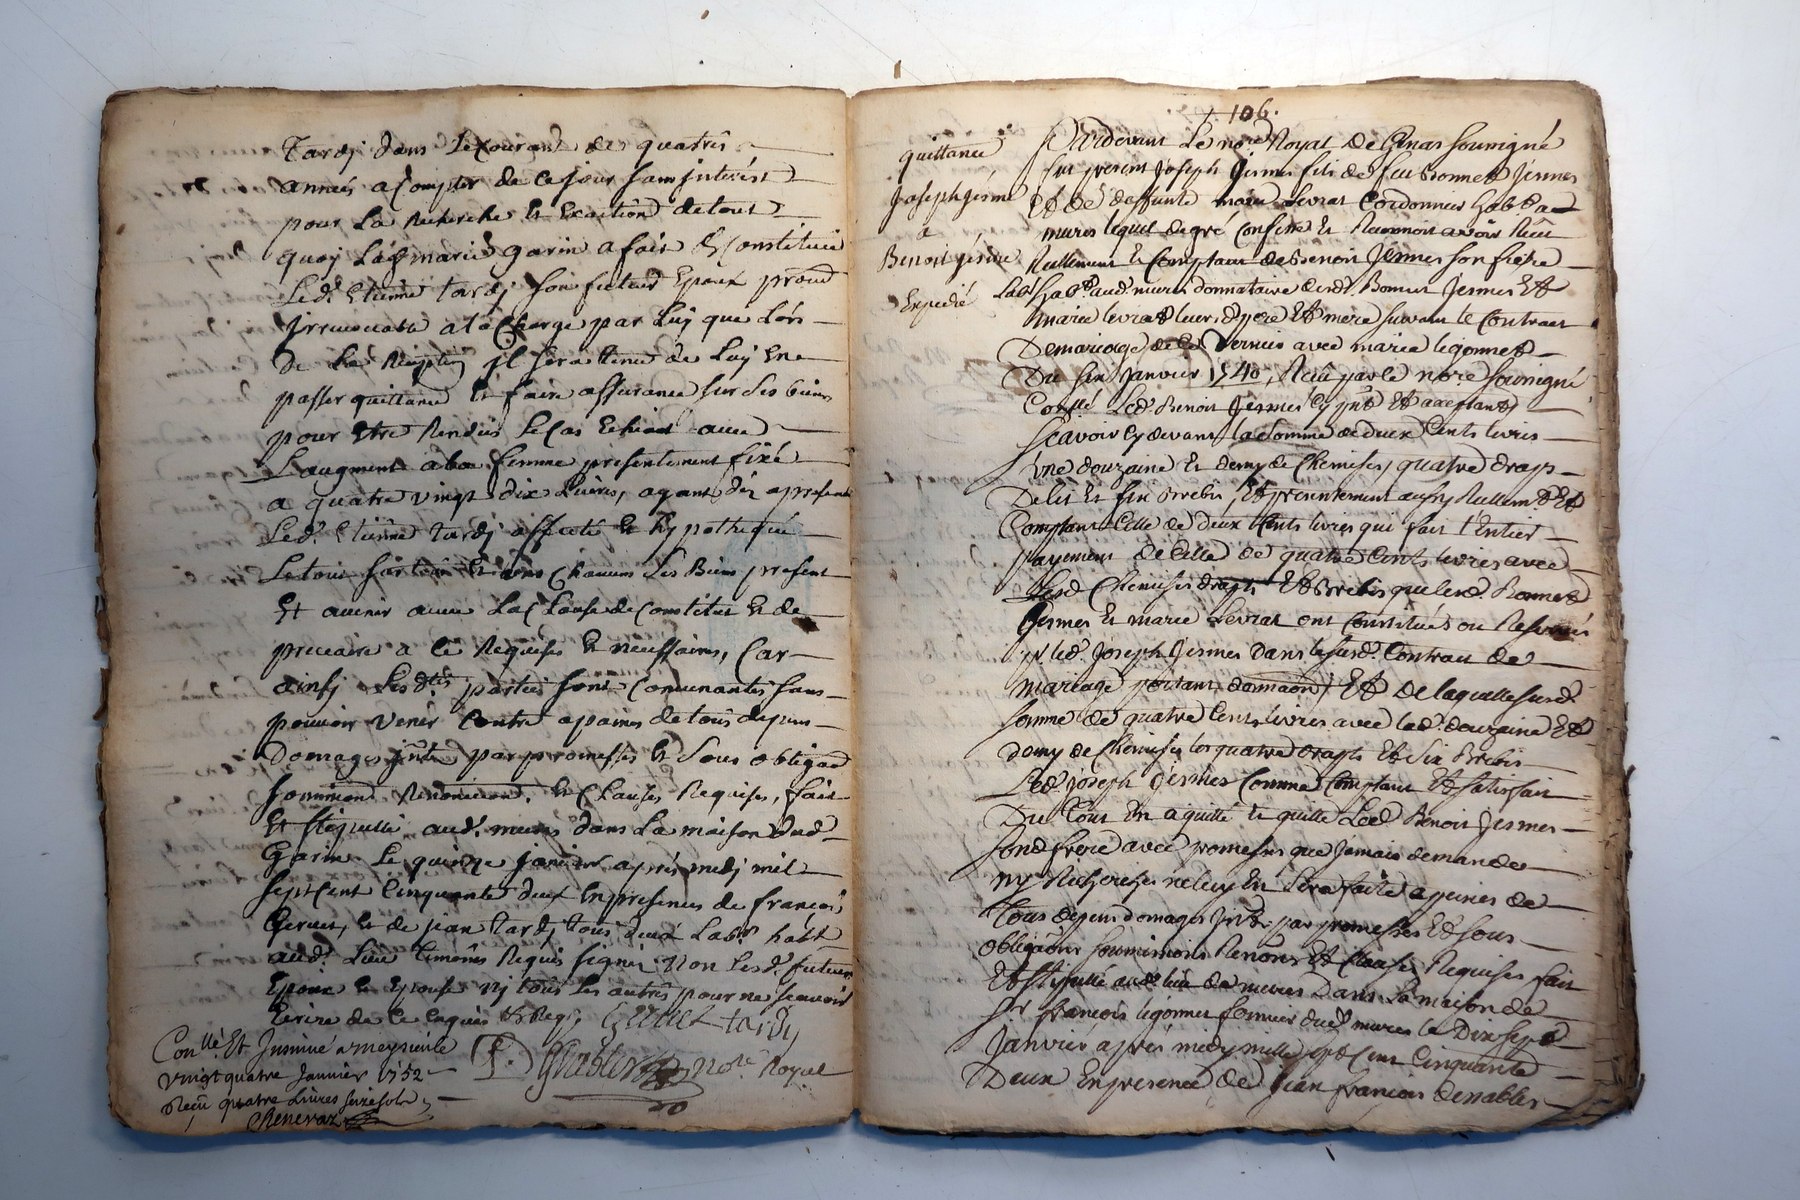 Tardj dans Le Courant de quatres
années a Compter de Ce jour sans jnterest
pour La Recherche Et Exaction de tout
quoy Lad. marie garin a fait Et Constitué
Led. Etienne tardj son futeur Epoux
jrrevocable a la Charge par Luj que Lors
De La Reception jl sera tenu de Luj En
passer quittance Et faire assurance sur ses biens
pour Etre Rendus Le Cas Echeant avec
L'augment a la femme presentement fixé
a quatre vingt dix Livres, ayant dez a present
Led. Etienne tardj affecté Et hypothequé
Le tout sur tous Et uns Chacuns Ses Biens present
Et avenir avec La Clause de Constitut Et de
precaire a Ce Requises Et necessaires, Car
ainsj Lesdtes parties sont Convenantes sans
pouvoir venir Contre a paines de tous depens
Domages jnts par promesses Et Sous obligaon
soumission Renonciaon, Et Clauses Requises, fait
Et stipullé aud. mures dans La maison dud.
Garin Le quinze janvier apres medj mil
sept Cent Cinquante deux En presences de francois
Gervet, Et de jean tardj tous deux Labrs habt
aud. Lieu temoins Requis signes Non Lesd. futeurs
Epoux Et Epouse nj tous Les autres pour ne scavoir
Ecrire de Ce Enquis Et Requis
tardj
Note Royal
Conllé Et Jnsinué a meysieule
vingt quatre Janvier 1752
Reçu quatre Livres seize sols
106.
quittance
Joseph jesme
a
Benoit jesme
Expedié
Pardevant Le nore Royal de Genas soussigné
fut present Joseph Jesmes fils de feu Bonnet Jesmes
Et de deffunte marie Levrat Cordonnier hab. a
mures lequel de gré Confesse Et Reconnoit avoir Reçu
Reellement Et Comptant de Benoit Jesmes son frere
Labr hab. aud. mures donnataire desd. Bonnet Jesmes Et
marie Levrat leurs pere Et mere suivant le Contract
De mariage de Ce Dernier avec marie legonnet
Du six Janvier 1740, Reçu par le nore soussigné
Conllé Led. Benoit Jesmes Cy pnt Et acceptant
Scavoir Cy devant la somme de deux Cents livres
une douzaine Et demy de Chemises, quatre draps
De lit Et six Brebis, Et presentement aussy Reellemt Et
Comptant Celle de deux Cents livres qui fait l'Entier
payement de Celle de quatre Cents livres avec
Lesd. Chemises draps Et Brebis que lesd. Bonnet
Jesmes Et marie Levrat ont Constitués ou Reservés
led. Joseph Jesmes Dans le susd. Contract de
mariage portant donnaon, Et de laquelle susd.
somme de quatre Cents livres avec lad. douzaine Et
demy de Chemises les quatre draps Et Six Brebis
Led. joseph Jesmes Comme Comptant Et satisfait
Du tout En a quitté Et quitte Led. Benoit Jesmes
son frere avec promesses que Jamais demande
ny Recherches ne luy En sera faite a peines de
tous depens domages jnts par promesses Et sous
obligaons soumissions Renons Et Clauses Requises fait
Et Stipullé aud. lieu de mures Dans La maison de
Sr françois legonnet fermier dud. mures le Dix sept
Janvier apres medy mille sept Cent Cinquante
Deux En presence de Jean françois